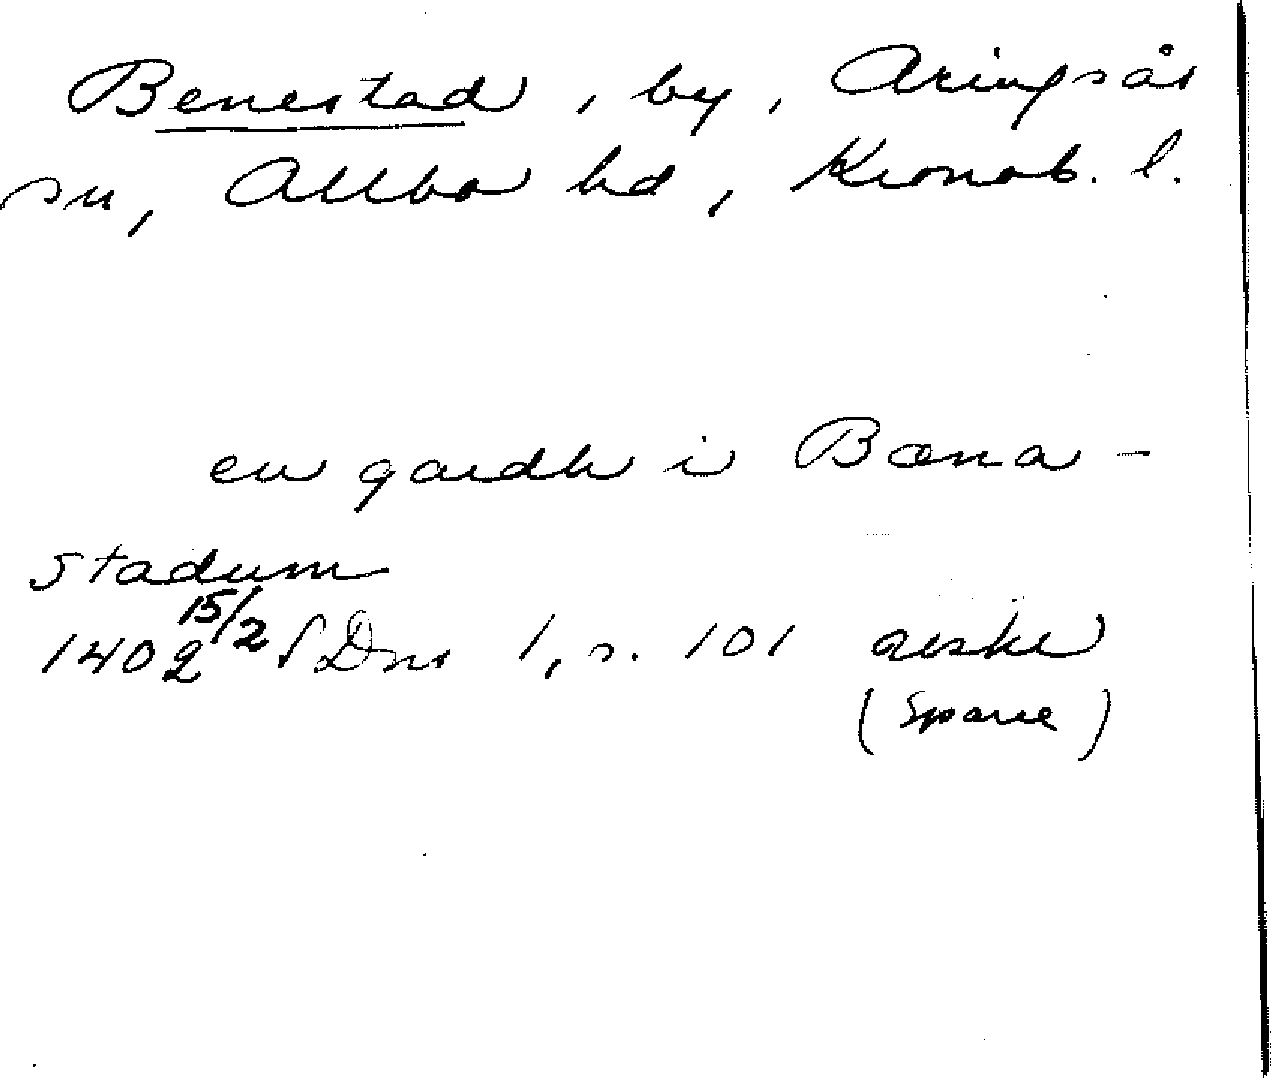 Benestad, by, Aringsås
sn, Allbo hd, Kronob. l.
en gardh i Bæna-
stadum
1402 15/2 SDns 1, s. 101 avskr
(Sparre)